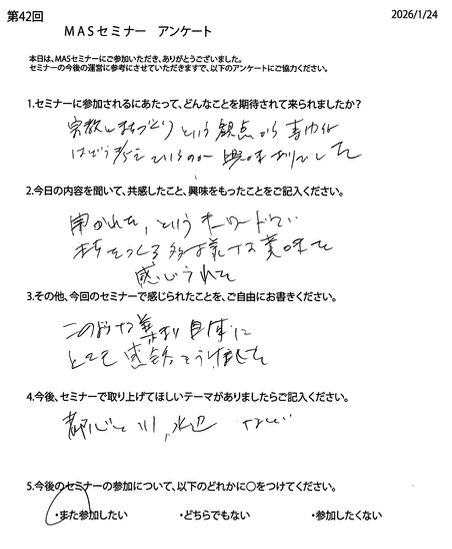 第42回
2026/1/24
MASセミナー アンケート
本日は、MASセミナーにご参加いただき、ありがとうございました。
セミナーの今後の運営に参考にさせていただきますで、以下のアンケートにご協力ください。
1.セミナーに参加されるにあたって、どんなことを期待されて来られましたか?
宗教とまちづくりという観点から
はどう考えているのか 興味ありでした
2.今日の内容を聞いて、共感したこと、興味をもったことをご記入ください。
開かれた、というキーワードで
まちをつくる多様な意味を
感じられた
3.その他、今回のセミナーで感じられたことを、ご自由にお書きください。
このような 自体に
とても感銘をうけました
4.今後、セミナーで取り上げてほしいテーマがありましたらご記入ください。
都心と川、水辺 など
5.今後のセミナーの参加について、以下のどれかに○をつけてください。
・また参加したい ・どちらでもない ・参加したくない